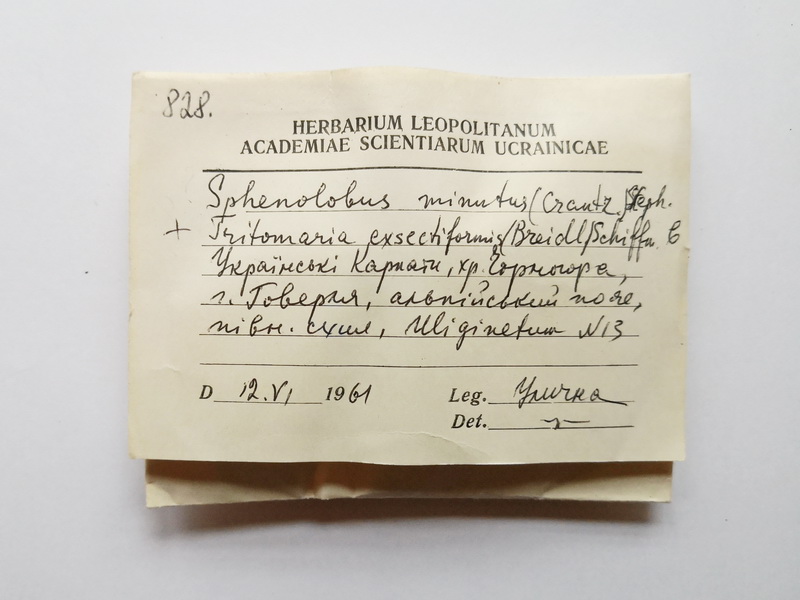 828.
HERBARIUM LEOPOLITANUM
ACADEMIAE SCIENTIARUM UCRAINICAE
Sphenolobus minutus (Crantz) Steph.
+ Tritomaria exsectiformis (Breidl) Schiffn. C
Українські Карпати, хр. Чорногора,
г. Говерла, альпійський пояс,
півн. схил, Uliginetum N13
D 12.VI 1961 Leg. Уличка
Det. —〃—